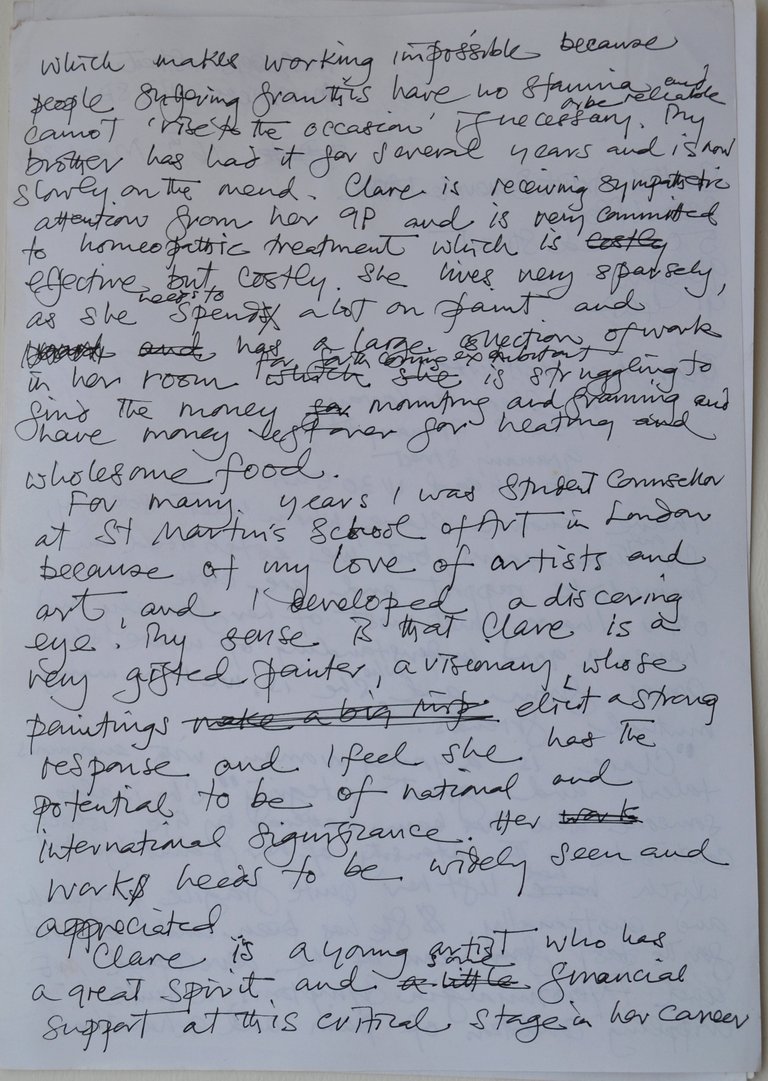 which makes working impossible because
people suffering from this have no stamina and
cannot 'rise to the occasion' or be reliable if necessary. My
brother has had it for several years and is now
slowly on the mend. Clare is receiving sympathetic
attention from her GP and is very committed
to homeopathic treatment which is costly
effective but costly. She lives very sparsely,
as she needs to spend a lot on paint and
and has a large collection of work
in her room for forthcoming exhibition which she is struggling to
find the money for mounting and framing and
have money left over for heating and
wholesome food.
For many years I was Student Counsellor
at St Martin's School of Art in London
because of my love of artists and
art, and I developed a discering
eye! My sense is that Clare is a
very gifted painter, a visionary, whose
paintings make a big imp elicit a strong
response and I feel she has the
potential to be of national and
international significance. Her work
works needs to be widely seen and
appreciated
Clare is a young artist who has
a great spirit and a little some financial
support at this critical stage in her career